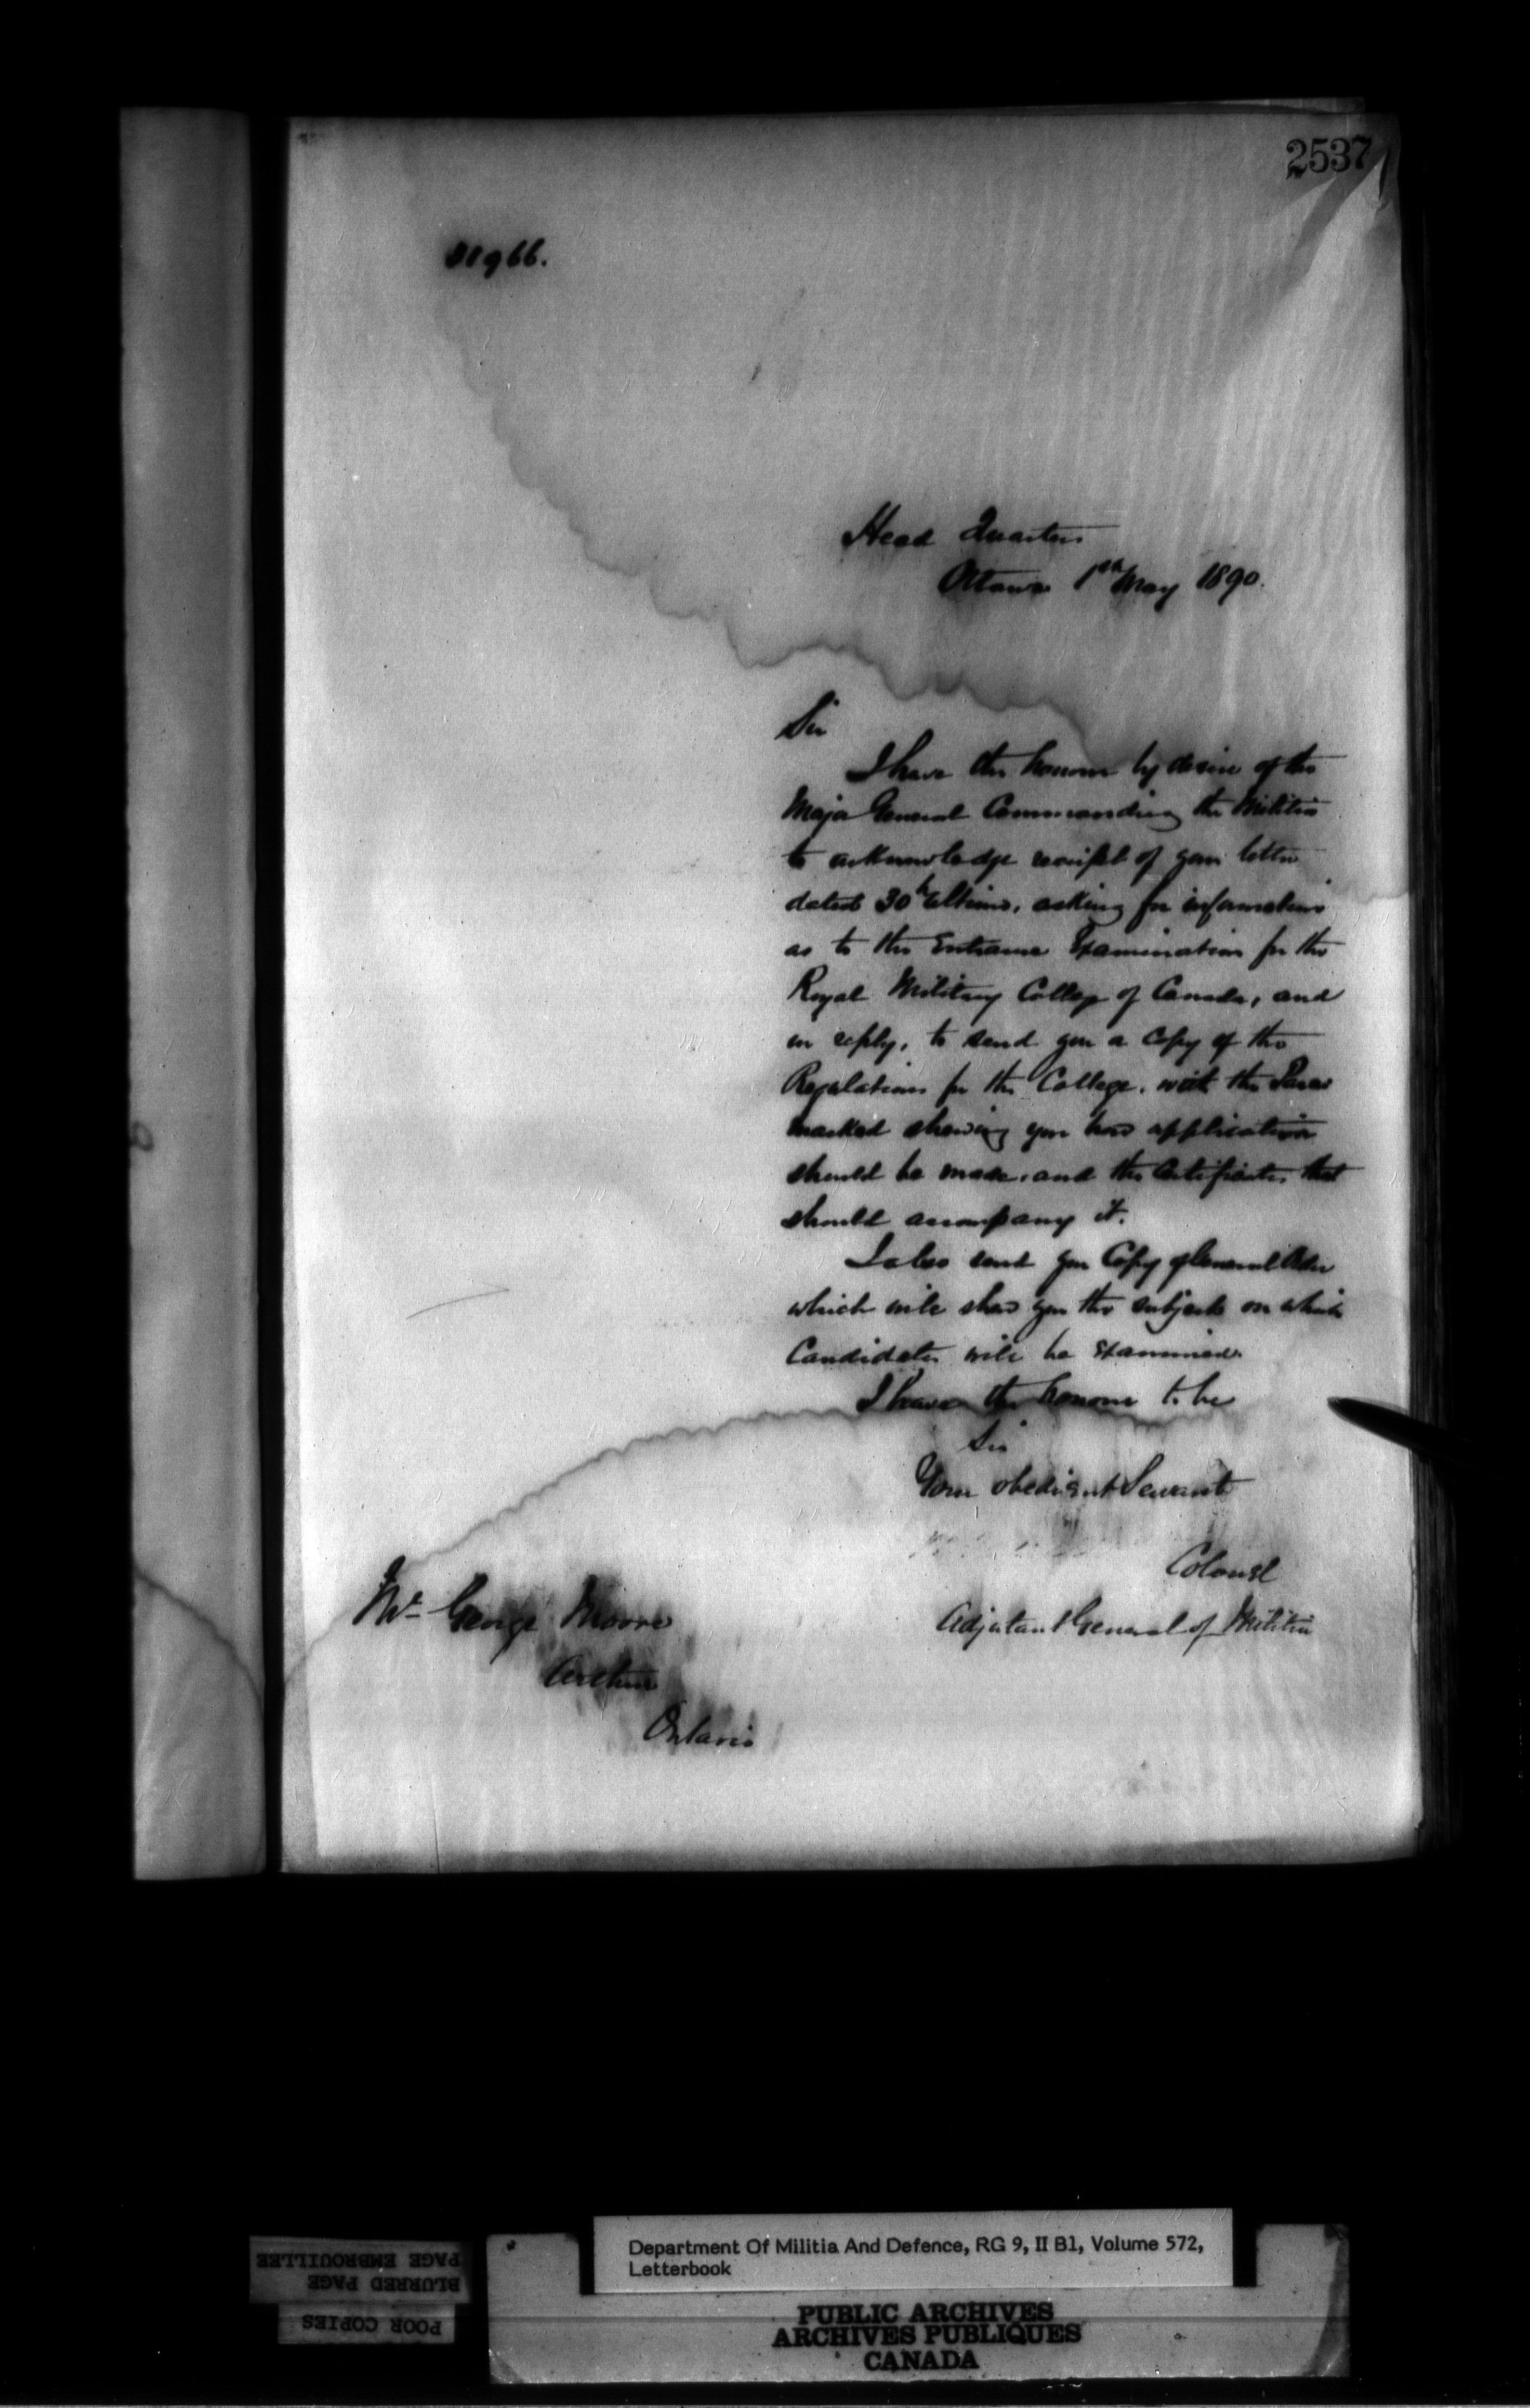 2537
Head Quarters
Ottawa 1st May 1890.
Sir
I have the honour by desire of the
Major General Commanding the Militia
to acknowledge receipt of your letter
dated 30th Ultimo, asking for information
as to the Entrance Examination for the
Royal Military College of Canada, and
in reply, to send you a Copy of the
Regulations for the College, with the Paras
marked shewing you how application
should be made, and the Certificates that
should accompany it.
I also send you Copy of General Order
which will shew you the subjects on which
Candidates will be examined.
I have the honour to be
Sir
Your obedient Servant
Colonel
Adjutant General of Militia
Mr George Moore
Arthur
Ontario
PAGE EMBROUILLEE
BLURRED PAGE
POOR COPIES
Department Of Militia And Defence, RG 9, II B1, Volume 572,
Letterbook
PUBLIC ARCHIVES
ARCHIVES PUBLIQUES
CANADA